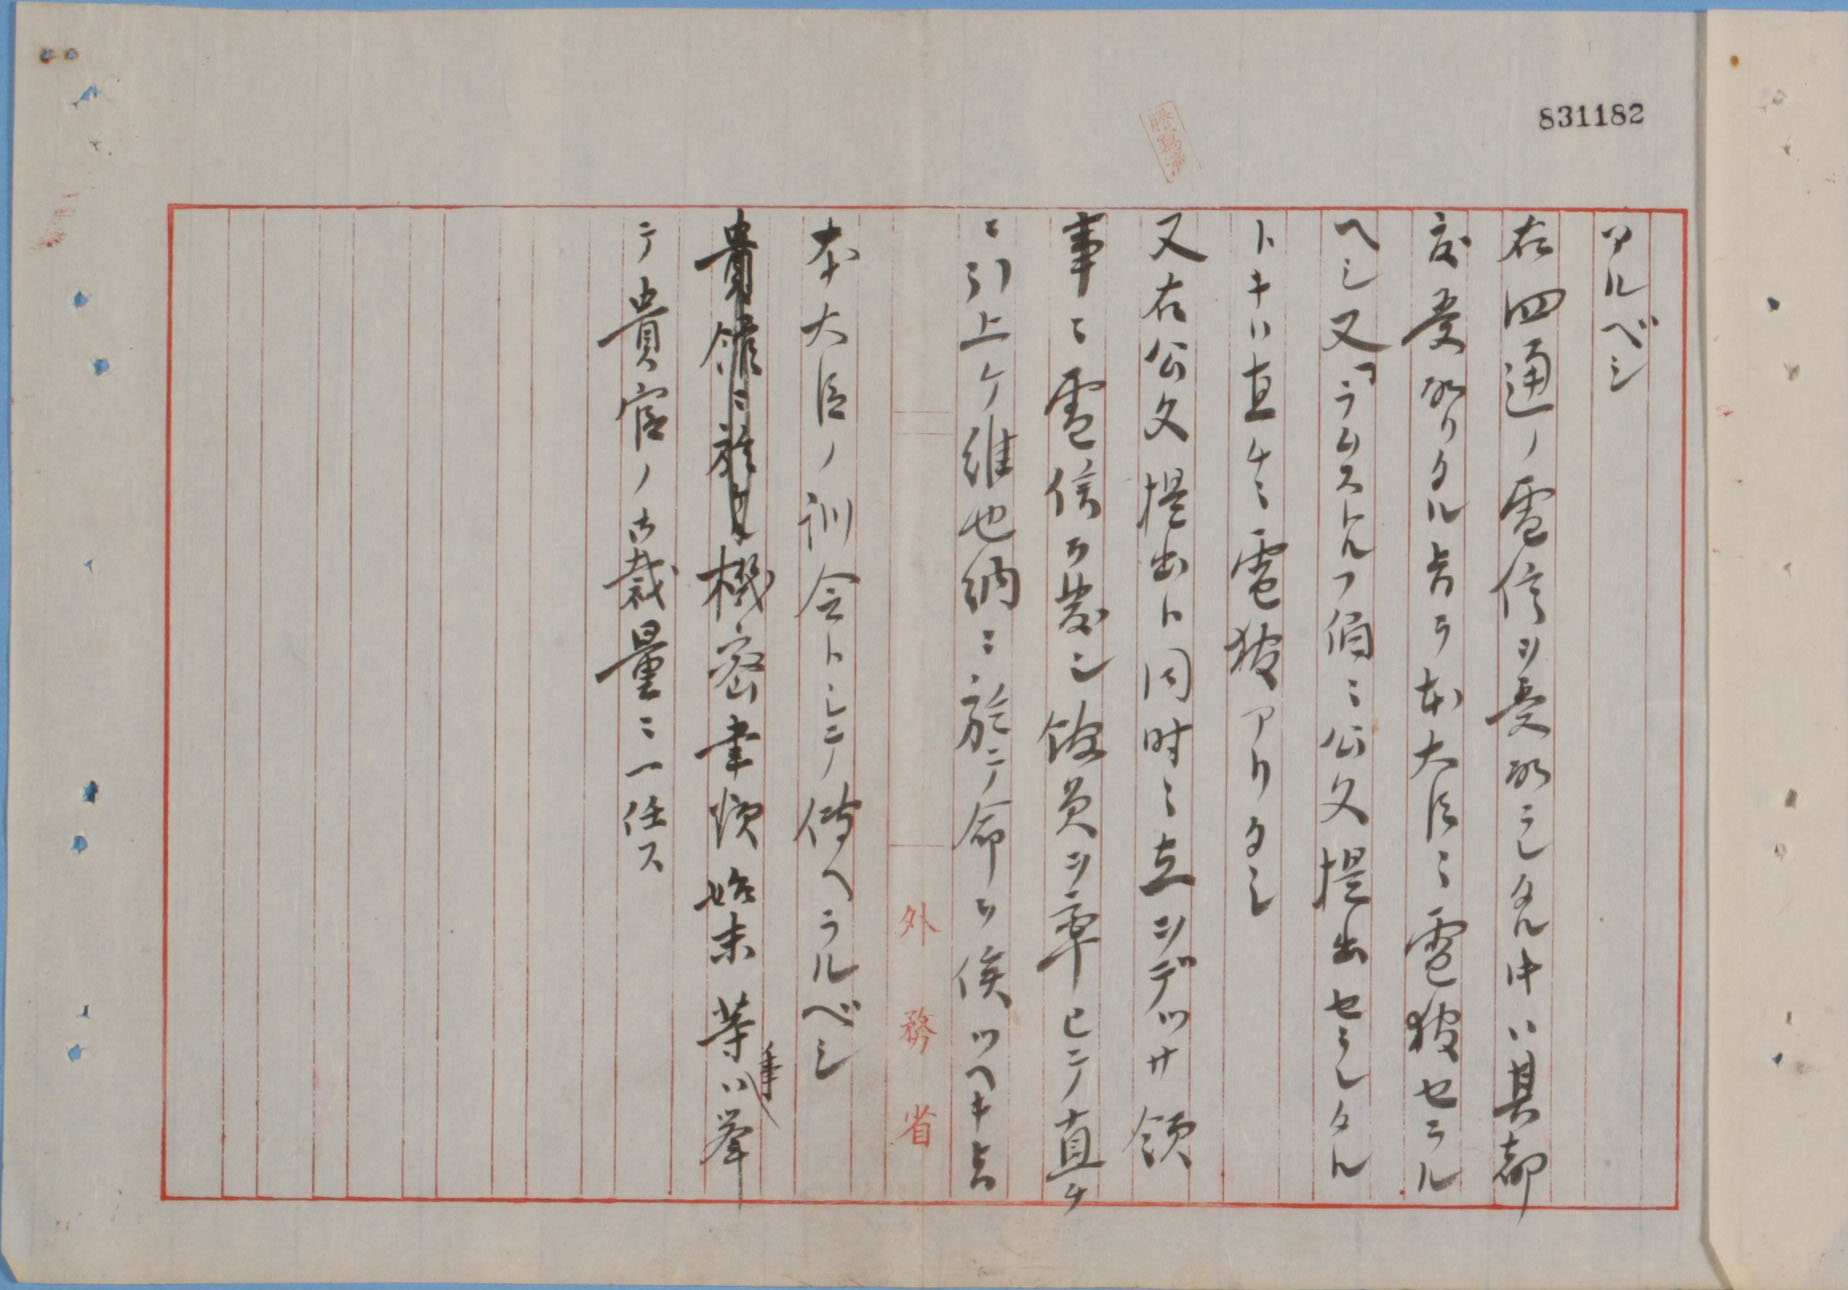 831182
謄写済
アルベシ
右四通ノ電信ヲ受取ラレタル時ハ其都
度受取リタル旨ヲ本大臣ニ電報セラル
ヘシ又「ラムストルフ伯ニ公文提出セラレタル
トキハ直チニ電報アリタシ
又右公文提出ト同時ニ在ヲデッサ領
事ニ電信ヲ発シ館員ヲ率ヒテ直チ
ニ引上ケ維也納ニ於テ命ヲ俟ツヘキ旨
本大臣ノ訓令トシテ傳ヘラルベシ
貴館ニ於ケル機密書類始末等ノ事ハ挙
テ貴官ノ御裁量ニ一任ス
外務省